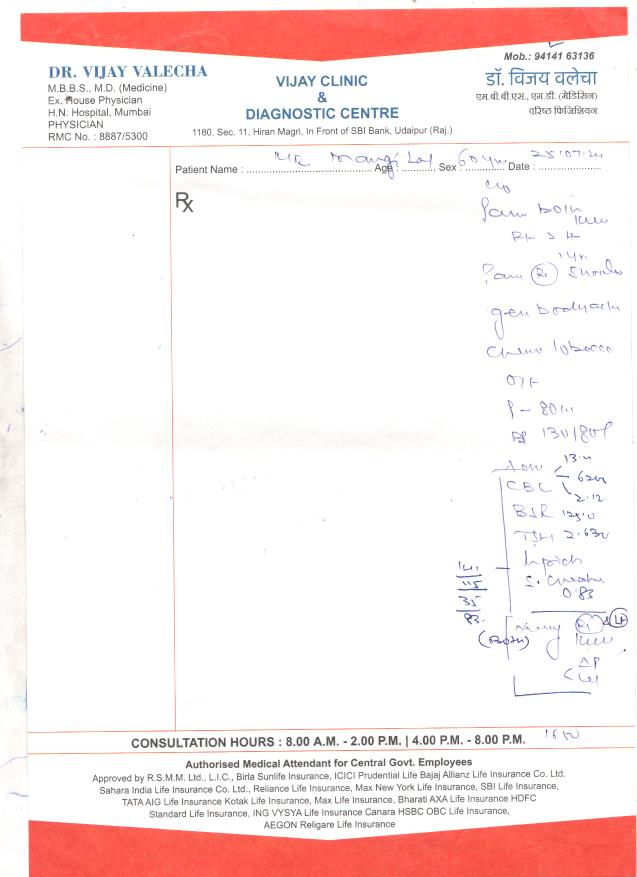 Mob.: 94141 63136
DR. VIJAY VALECHA
M.B.B.S., M.D. (Medicine)
Ex. House Physician
H.N. Hospital, Mumbai
PHYSICIAN
RMC No. : 8887/5300
VIJAY CLINIC
&
DIAGNOSTIC CENTRE
1180, Sec. 11, Hiran Magri, In Front of SBI Bank, Udaipur (Raj.)
डॉ. विजय वलेचा
एम.बी.बी.एस., एम.डी. (मेडिसिन)
वरिष्ठ फिजिशियन
Patient Name : Mr Mangi Lal Age : Sex : 60 Date :
Rx
c/o
Pain both knee
Rt > Lt
Pain Rt Shoulder
gen bodyache
chew tobacco
O/E
P - 80
BP 130/80
CBC
2.12
BSR 125.0
TSH 2.630
Lipid
S. Creatin
0.83
141
115
35
83
(Both)
Knee
AP
CONSULTATION HOURS : 8.00 A.M. - 2.00 P.M. | 4.00 P.M. - 8.00 P.M.
Authorised Medical Attendant for Central Govt. Employees
Approved by R.S.M.M. Ltd., L.I.C., Birla Sunlife Insurance, ICICI Prudential Life Bajaj Allianz Life Insurance Co. Ltd,
Sahara India Life Insurance Co. Ltd., Reliance Life Insurance, Max New York Life Insurance, SBI Life Insurance,
TATA AIG Life Insurance Kotak Life Insurance, Max Life Insurance, Bharati AXA Life Insurance HDFC
Standard Life Insurance, ING VYSYA Life Insurance Canara HSBC OBC Life Insurance,
AEGON Religare Life Insurance